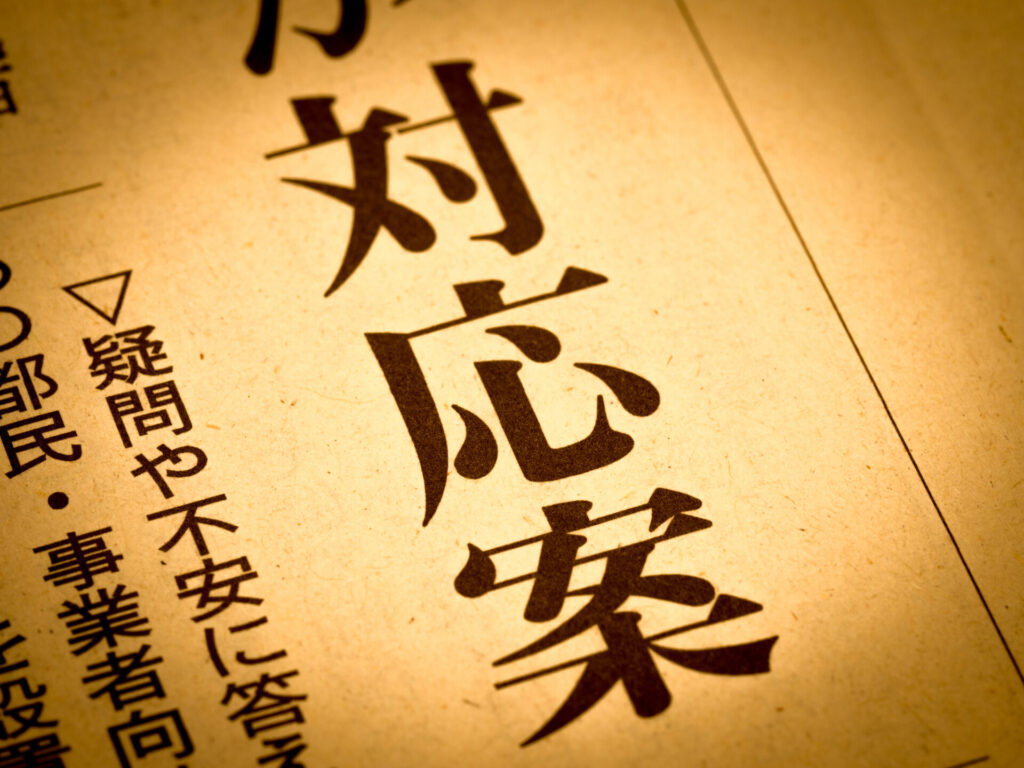 対応案
▽疑問や不安に答え
都民・事業者向
設置